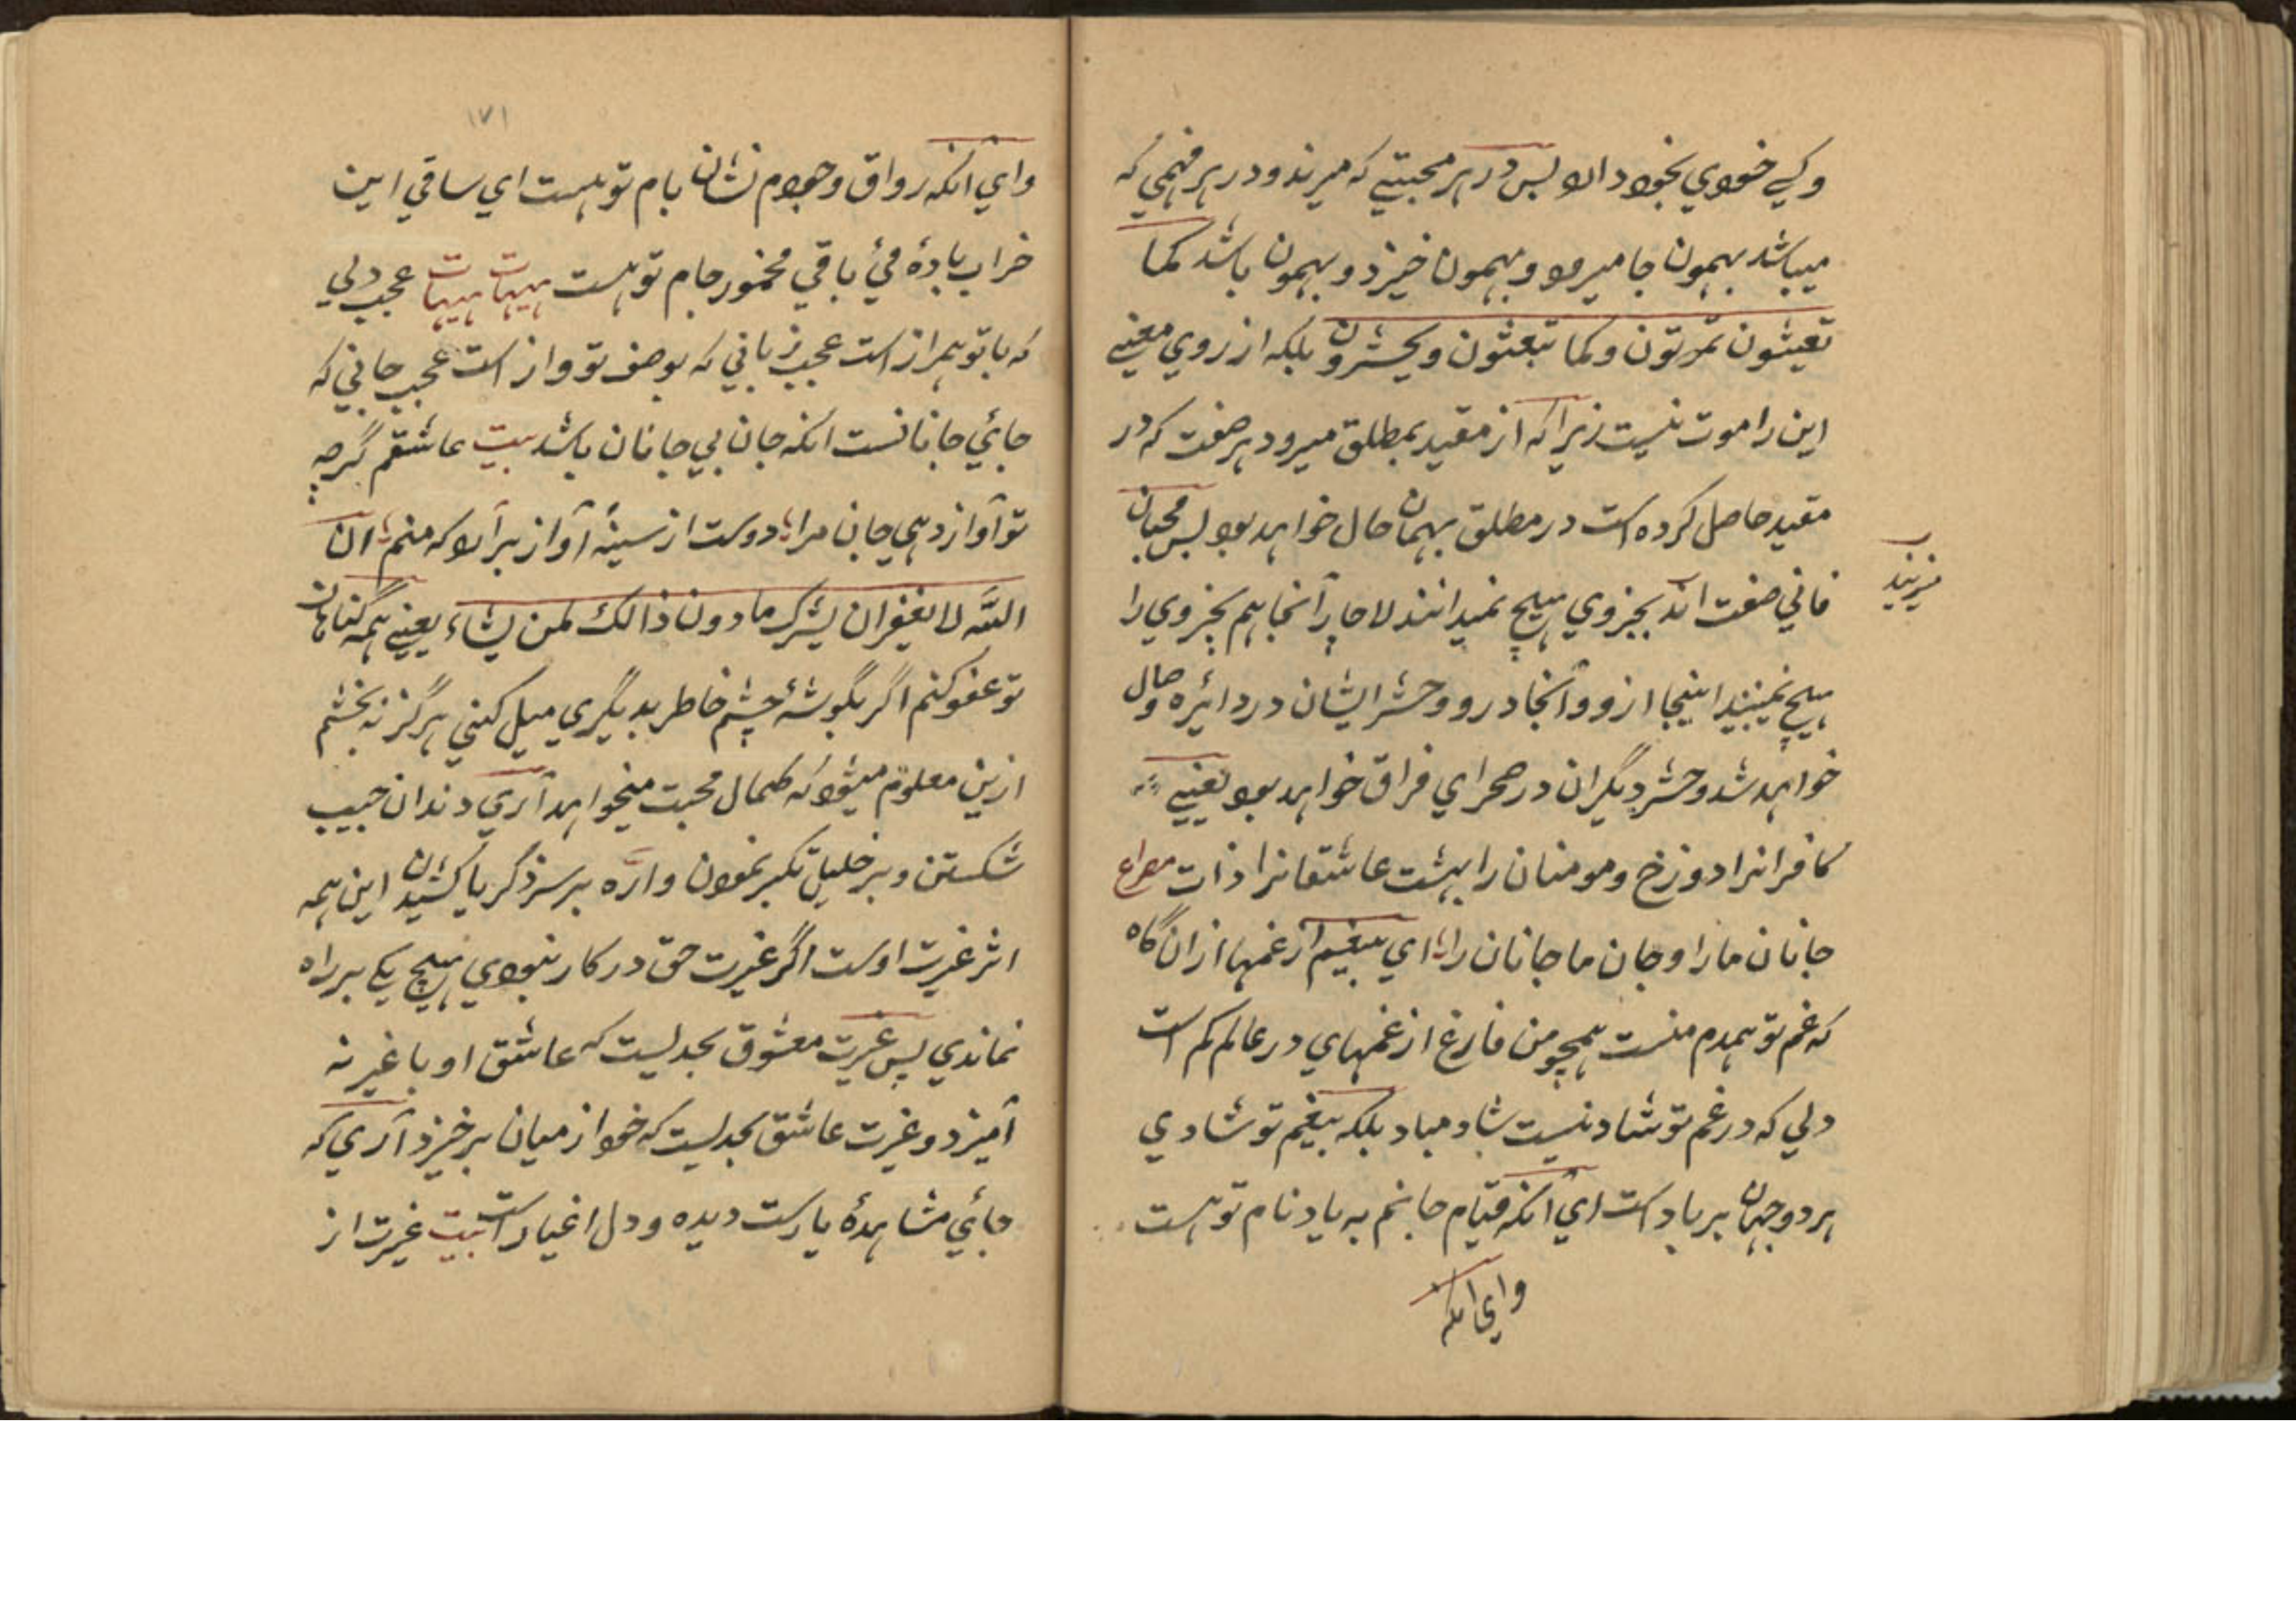 وکیے خودي بخود دارد پس در ہر محبتیے که میرند و در ہر فہمي که
میباشد بہمون جا میرود و بہمون خیزد و بہمون باشد کما
تعیشون تموتون وکما تبعثون ویحشرون بلکه از روي معنیے
این را موت نیست زیرا که از مقید بمطلق میرود ہر صفت که در
مقید حاصل کرده است در مطلق بہمان حال خواہد بود پس محبان
فاني صفت اند بجز وي ہیچ نمیدانند لاجار آنجا ہم بجز وي را
ہیچ نمیبینند اینجا ازو و آنجا درو و حشر ایشان در دائره وصال
خواہد شد و حشر دیگران در صحراي فراق خواہد بود یعنیے
کافرانرا دوزخ و مومنان را بہشت عاشقانرا ذات مصراع
جانان ما را و جان ما جانان را اي بیغم از غمہا ازان گاه
که غم تو ہمدم منست ہمچو من فارغ از غمہاي در عالم کم است
دلي که در غم تو شاد نیست شاد مباد بلکه بیغم تو شادي
ہر دو جہان بر باد است اي آنکه قیام جانم به یاد نام تو ہست
واي انکه
۱۷۱
واي آنکه رواق وجودم نشان بام تو ہست اي ساقي این
خراب بادهٔ مئ باقي مخمور جام تو ہست ہیہات ہیہات عجب دلي
که با تو ہمراز است عجب زباني که بوصف تو واز است عجب جاني که
جائي جانانست انکه جان بي جانان باشد بیت عاشقم گرچه
تو آواز دہي جان مرا دوست از سینۀ آواز برآرد که منم ان
اللّٰه لا یغفر ان یشرک ما دون ذالک لمن یشاء یعنیے ہمه گناہان
تو عفو کنم اگر بگوشۀ چشم خاطر بدیگري میل کني ہرگز نه بخشم
ازین معلوم میشود که کمال محبت میخواہد آري دندان حبیب
شکستن و بر خلیل تکبر نمودن و ارّه بر سر ذکریا کشیدن این ہمه
اثر غیرت اوست اگر غیرت حق در کار نبودي ہیچ یکے بر راه
نماندي پس غیرت معشوق بحدیست که عاشق او با غیر نه
آمیزد و غیرت عاشق بحدیست که خود از میان برخیزد آري که
جائي مشاہدهٔ یارست دیده و دل اغیار است بیت غیرت از